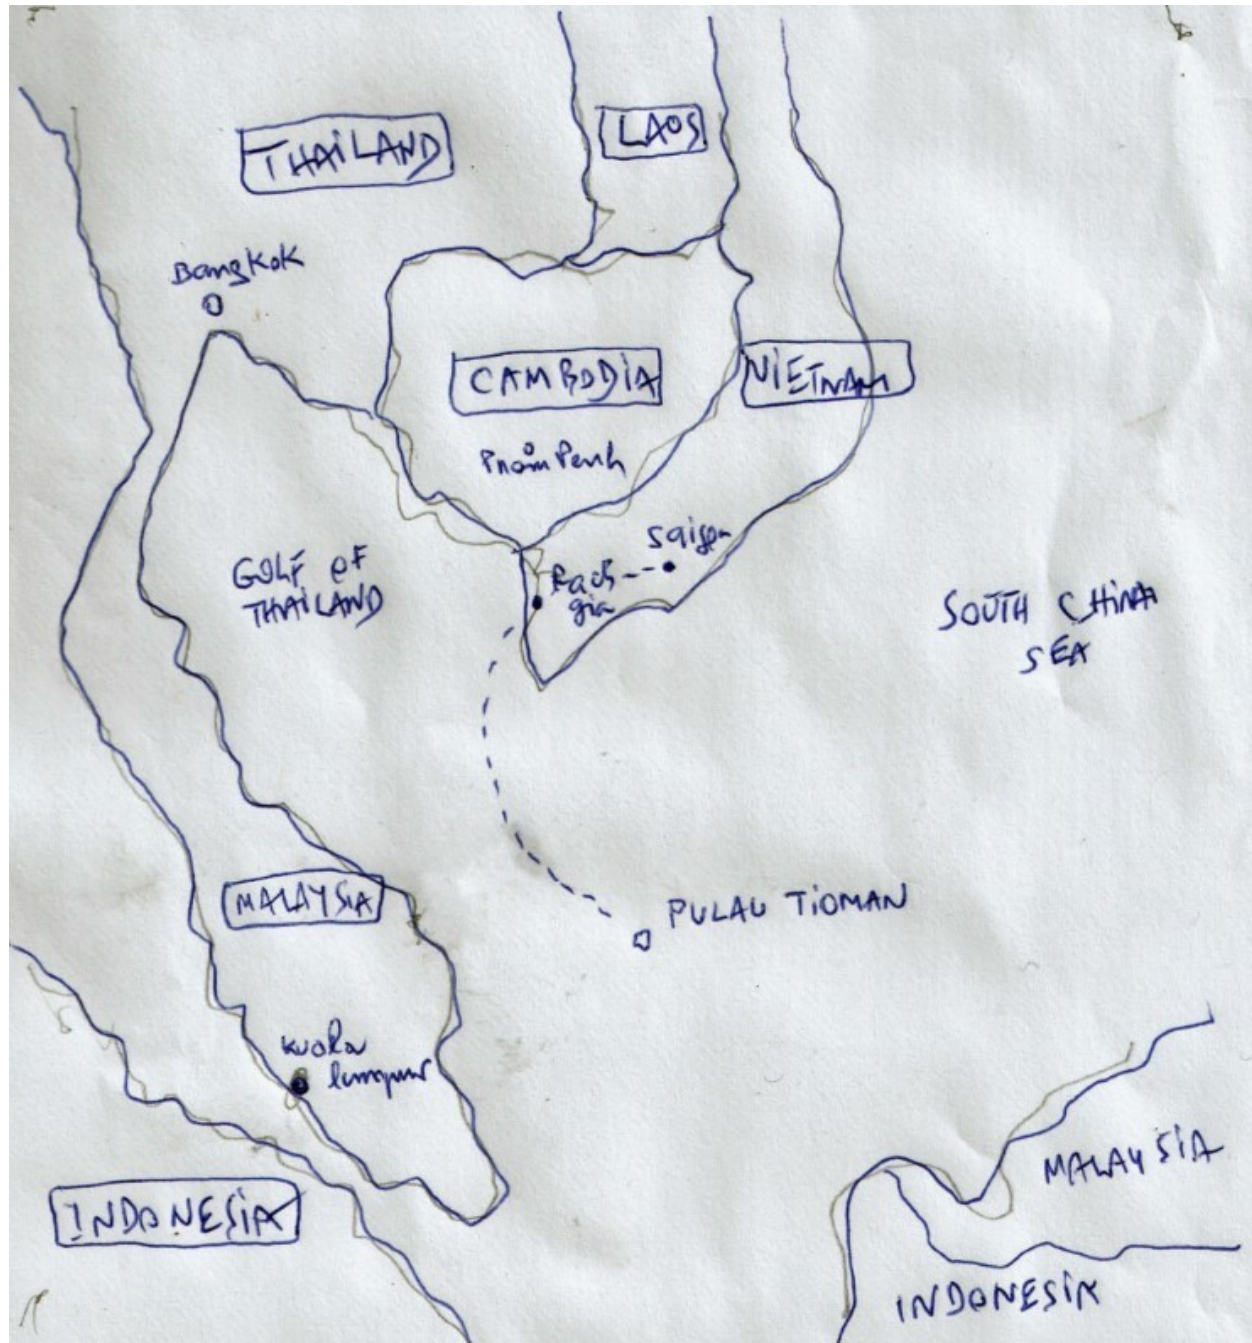 THAILAND
LAOS
Bangkok
CAMBODIA
VIETNAM
PnomPenh
Saigon
Rach
gia
GOLF OF
THAILAND
SOUTH CHINA
SEA
MALAYSIA
PULAU TIOMAN
Kuala
lumpur
MALAYSIA
INDONESIA
INDONESIA